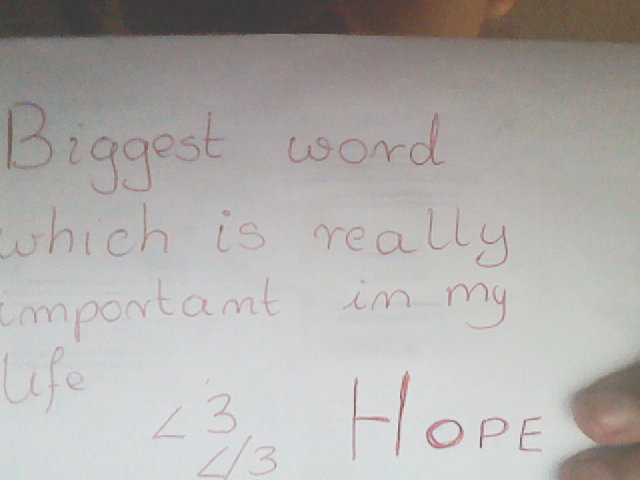 Biggest word
which is really
important in my
life
<3 HOPE
</3